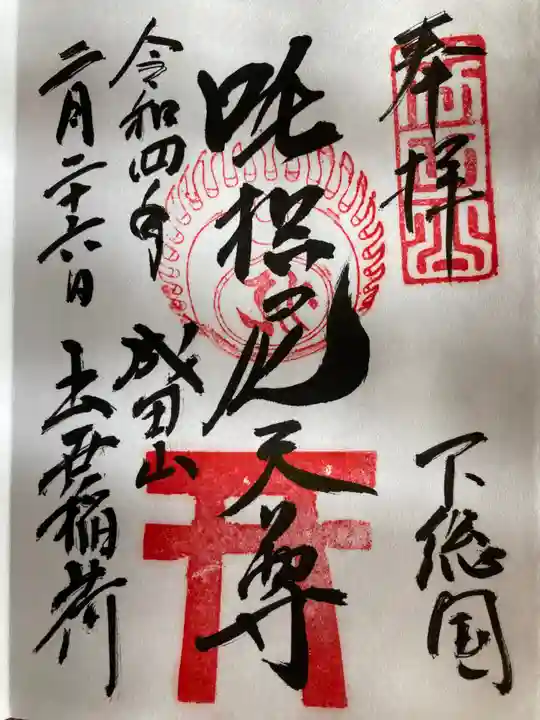 奉拝
下総国
吒枳尼天尊
成田山
出世稲荷
令和四年
二月二十六日